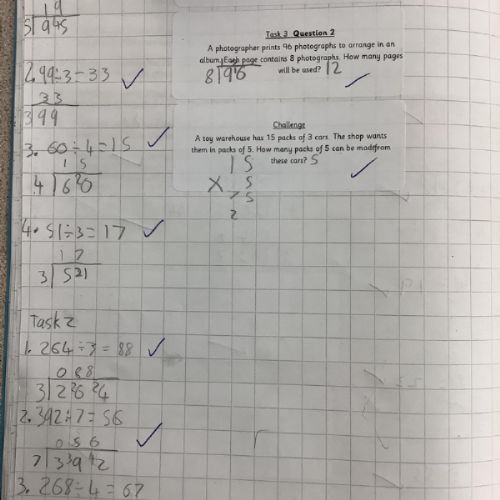 19
5 945
2. 99÷3=33
33
3 99
3. 60÷4=15
15
4 6 20
4. 51÷3=17
17
3 5 21
Task 2
1. 264÷3=88
088
3 2 26 24
2. 392÷7=56
056
7 3 39 42
3. 268÷4=67
Task 3 Question 2
A photographer prints 96 photographs to arrange in an
album. Each page contains 8 photographs. How many pages
will be used? 12
8 96
Challenge
A toy warehouse has 15 packs of 3 cars. The shop wants
them in packs of 5. How many packs of 5 can be made from
these cars? 5
15
X 5
75
2